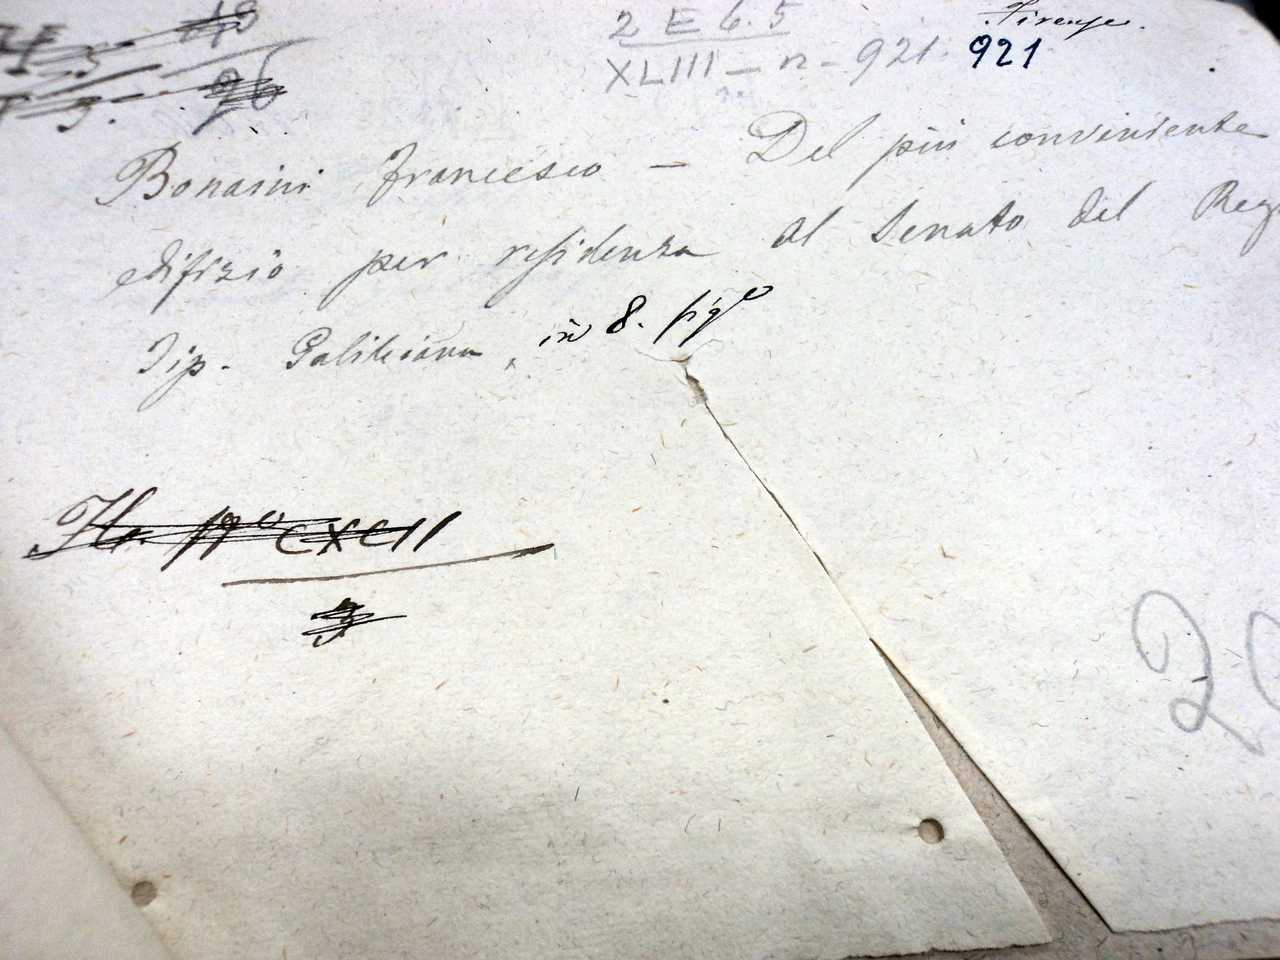 2 E 6.5
XLIII - n - 921.
Firenze.
921
Bonaini Francesco - Del più conveniente
edifizio per residenza al Senato del Reg
Tip. Galileiana, in 8. fig°
CXCII